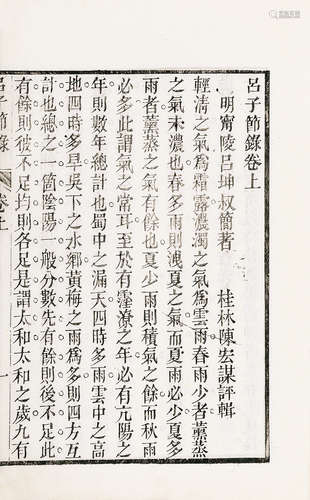 呂子節錄卷上
明甯陵呂坤叔簡著 桂林陳宏謀評輯
輕清之氣爲霜露濃濁之氣爲雲雨春雨少者薰蒸
之氣未濃也春多雨則洩夏之氣而夏雨必少夏多
雨者薰蒸之氣有餘也夏少雨則積氣之餘而秋雨
必多此謂氣之常耳至於有霪潦之年必有亢陽之
年則數年總計也蜀中之漏天四時多雨雲中之高
地四時多旱吳下之水鄉黃梅之雨爲多則四方互
計也總之一箇陰陽一般分數先有餘則後不足此
有餘則彼不足均則各足是謂太和太和之歲九有
呂子節錄 卷上 一